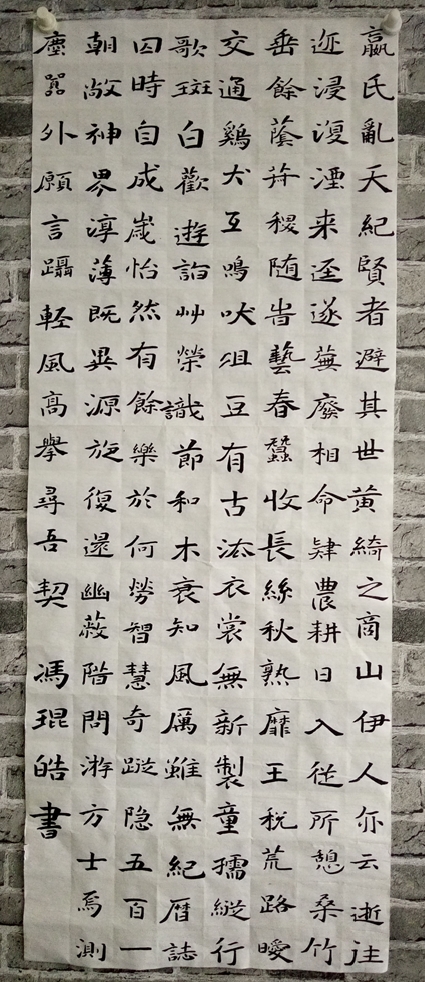 嬴氏亂天紀賢者避其世黄綺之商山伊人亦云逝往
迹浸復湮来逕遂蕪廢相命肄農耕日入從所憩桑竹
垂餘蔭菽稷随旹藝春蠶收長絲秋熟靡王税荒路曖
交通鷄犬互鳴吠俎豆有古法衣裳無新製童孺縱行
歌斑白歡遊詣艸榮識節和木衰知風厲雖無紀曆誌
四時自成歲怡然有餘樂於何勞智慧奇蹤隐五百一
朝敞神界淳薄既異源旋復還幽蔽階問游方士焉測
塵囂外願言躡輕風高舉尋吾契 馮琨皓書